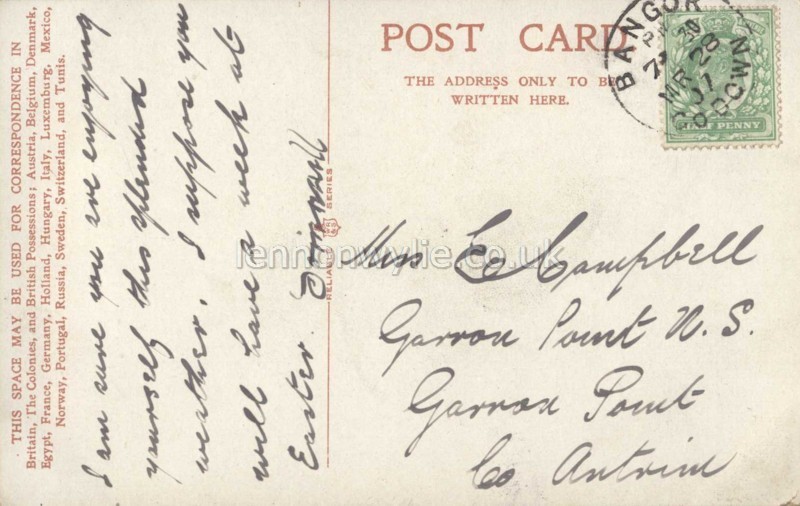 THIS SPACE MAY BE USED FOR CORRESPONDENCE IN
Britain, The Colonies, and British Possessions; Austria, Belgium, Denmark,
Egypt, France, Germany, Holland, Hungary, Italy, Luxemburg, Mexico,
Norway, Portugal, Russia, Sweden, Switzerland, and Tunis.
I am sure you are enjoying
yourself this splendid
weather. I suppose you
will have a week at
Easter.
RELIABLE
SERIES
POST CARD
THE ADDRESS ONLY TO BE
WRITTEN HERE.
BANGOR
CO DOWN
PM
MR 28
HALF PENNY
Miss E Campbell
Garron Point N.S.
Garron Point
Co Antrim
lennonwylie.co.uk